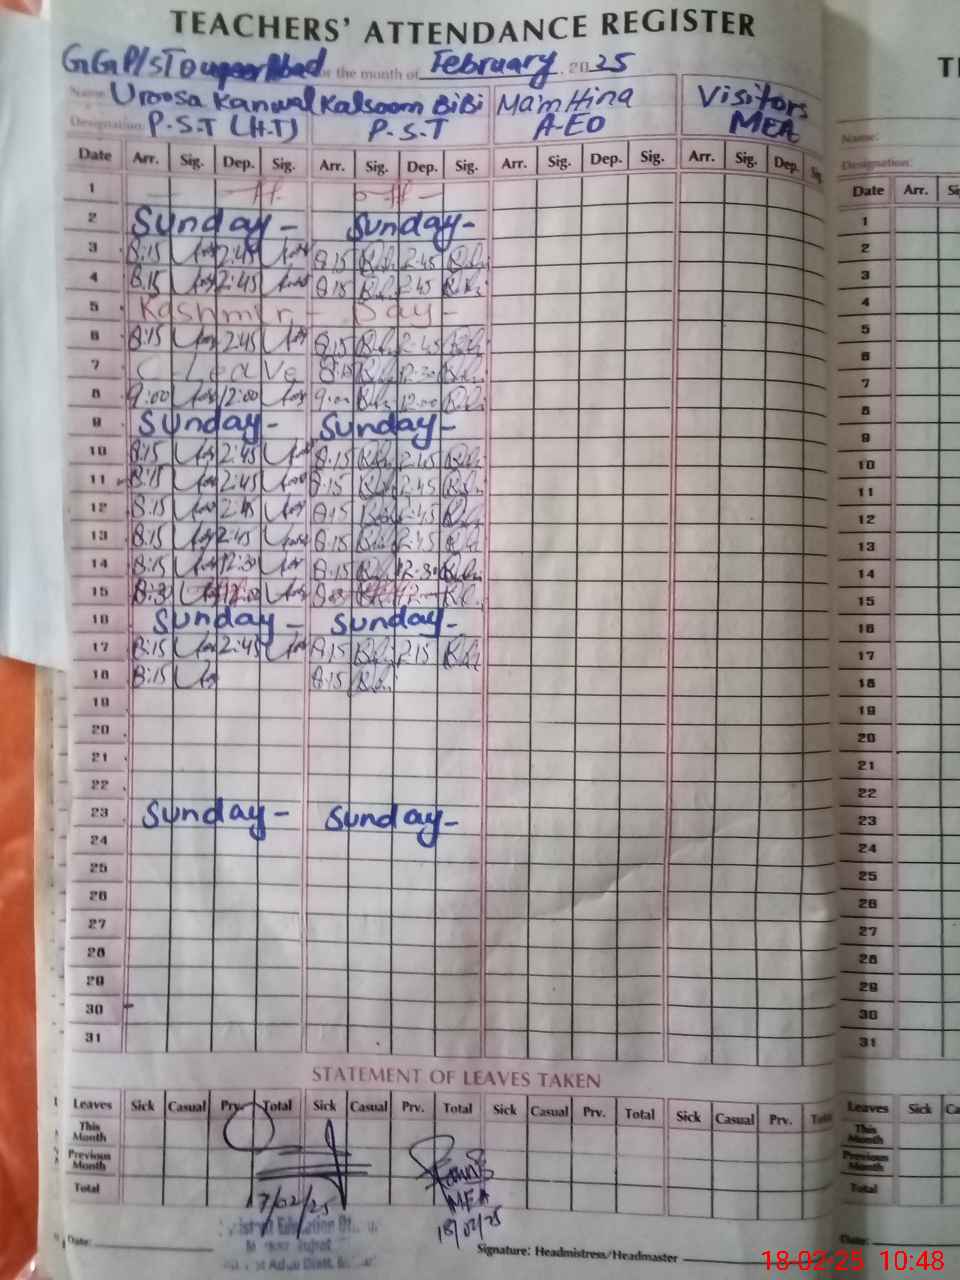 TEACHERS' ATTENDANCE REGISTER
for the month of February, 2025
Name: Uroosa Kanwal Kalsoom BiBi Ma'm Hina Visitors
Designation: P.S.T (H.T) P.S.T A-EO MEA
Date Arr. Sig. Dep. Sig. Arr. Sig. Dep. Sig. Arr. Sig. Dep. Sig. Arr. Sig. Dep. Sig.
1
2 Sunday - Sunday -
3 8:15 2:45 8:15 2:45
4 8:15 2:45 8:15 2:45
5 Kashmir - Day -
6 8:15 2:45 8:15 2:45
7 C Leave 8:15 12:30
8 9:00 12:00 9:00 12:00
9 Sunday - Sunday -
10 8:15 2:45 8:15 2:45
11 8:15 2:45 8:15 2:45
12 8:15 2:45 8:15 2:45
13 8:15 2:45 8:15 2:45
14 8:15 12:30 8:15 12:30
15 8:30
16 Sunday - Sunday -
17 8:15 2:45 8:15 2:15
18 8:15 8:15
19
20
21
22
23 Sunday - Sunday -
24
25
26
27
28
29
30
31
STATEMENT OF LEAVES TAKEN
Leaves Sick Casual Prv. Total Sick Casual Prv. Total Sick Casual Prv. Total Sick Casual Prv. Total
This Month
Previous Month
Total
17/02/25
MEA
18/02/25
Date:
Signature: Headmistress/Headmaster
Name:
Designation:
Date Arr.
1
2
3
4
5
6
7
8
9
10
11
12
13
14
15
16
17
18
19
20
21
22
23
24
25
26
27
28
29
30
31
Leaves Sick
This Month
Previous Month
Total
Date:
18-02-25 10:48